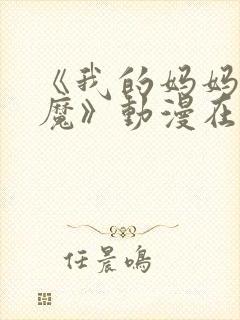 《我的妈妈
魔》動漫在
任晨鳴